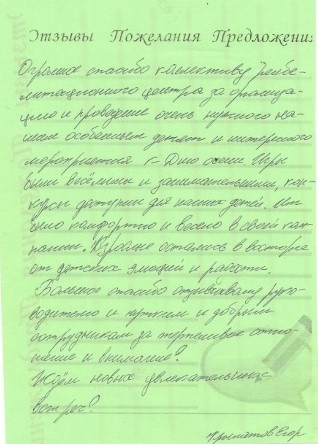 Отзывы Пожелания Предложения
Огромное спасибо коллективу реаби-
литационного центра за организа-
цию и проведение очень нужного на-
шим особенным детям и интересного
мероприятия к Дню семьи. Игры
были весёлыми и занимательными, кон-
курсы доступны для наших детей. Им
было комфортно и весело в своей ком-
пании. Взрослые остались в восторге
от детских эмоций и радости.
Большое спасибо отзывчивому руко-
водителю и чутким и добрым
сотрудникам за терпеливое отно-
шение и внимание!
Ждём новых увлекательных
встреч!
Егор